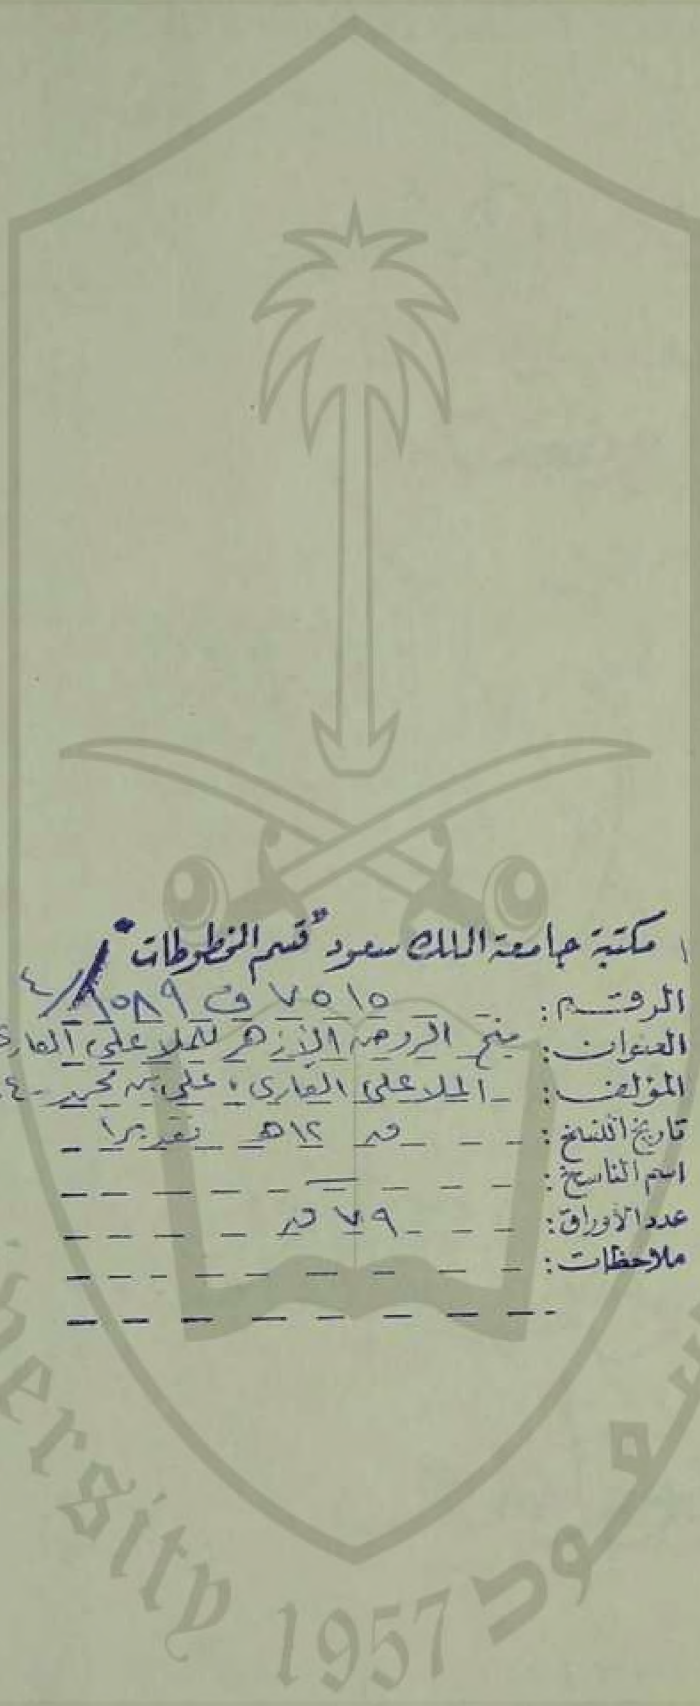 مكتبة جامعة الملك سعود "قسم المخطوطات"
الرقم: ٧٥١٥ ف ٨٥٨٩/٤
العنوان: منح الروض الأزهر للملا علي القاري
المؤلف: الملا علي القاري، علي بن محمد
تاريخ النسخ: ق ١٢هـ تقديرا
اسم الناسخ: —
عدد الأوراق: ٧٩ ق
ملاحظات:
ersity 1957 سعود